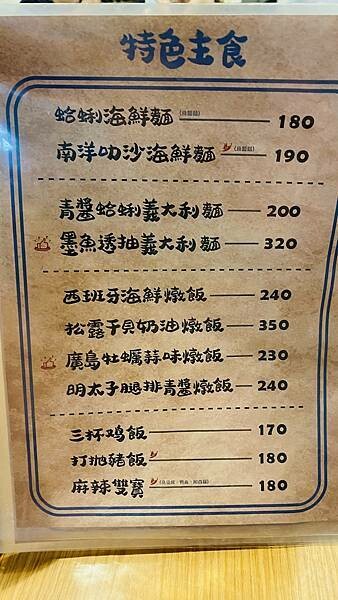 特色主食
蛤蜊海鮮麵(烏龍麵) 180
南洋叻沙海鮮麵(烏龍麵) 190
青醬蛤蜊義大利麵 200
墨魚透抽義大利麵 320
西班牙海鮮燉飯 240
松露干貝奶油燉飯 350
廣島牡蠣蒜味燉飯 230
明太子腿排青醬燉飯 240
三杯鸡飯 170
打拋豬飯 180
麻辣雙寶 180